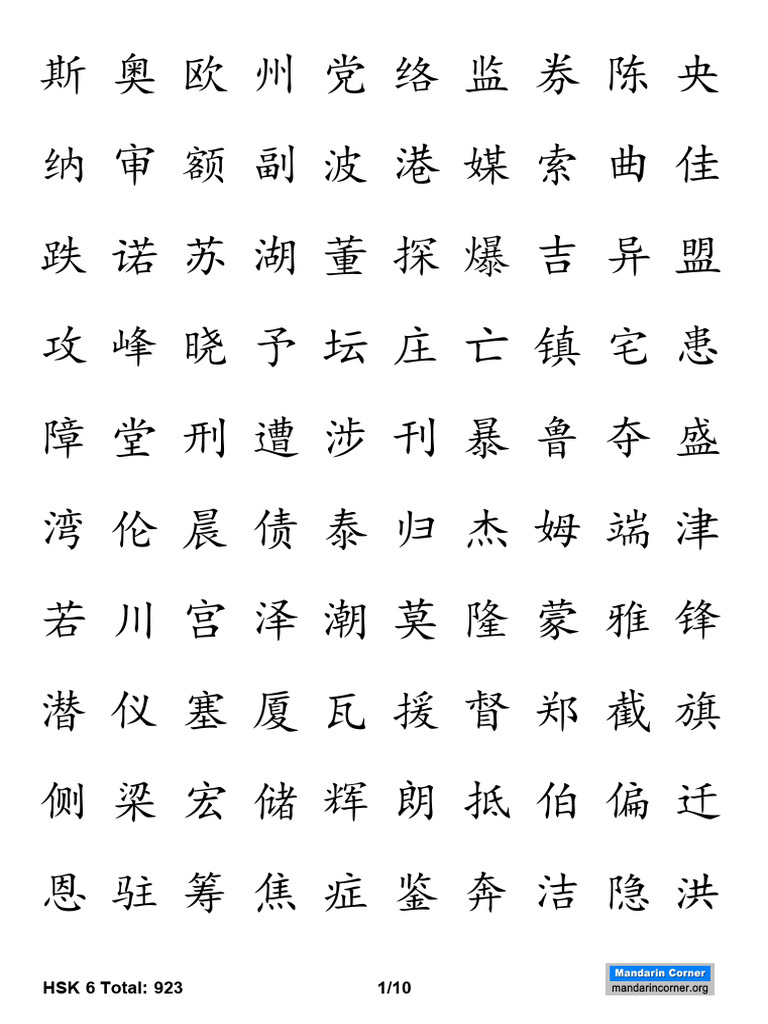 斯 奥 欧 州 党 络 监 券 陈 央
纳 审 额 副 波 港 媒 索 曲 佳
跌 诺 苏 湖 董 探 爆 吉 异 盟
攻 峰 晓 予 坛 庄 亡 镇 宅 患
障 堂 刑 遭 涉 刊 暴 鲁 夺 盛
湾 伦 晨 债 泰 归 杰 姆 端 津
若 川 宫 泽 潮 莫 隆 蒙 雅 锋
潜 仪 塞 厦 瓦 援 督 郑 截 旗
侧 梁 宏 储 辉 朗 抵 伯 偏 迁
恩 驻 筹 焦 症 鉴 奔 洁 隐 洪
HSK 6 Total: 923 1/10
Mandarin Corner
mandarincorner.org